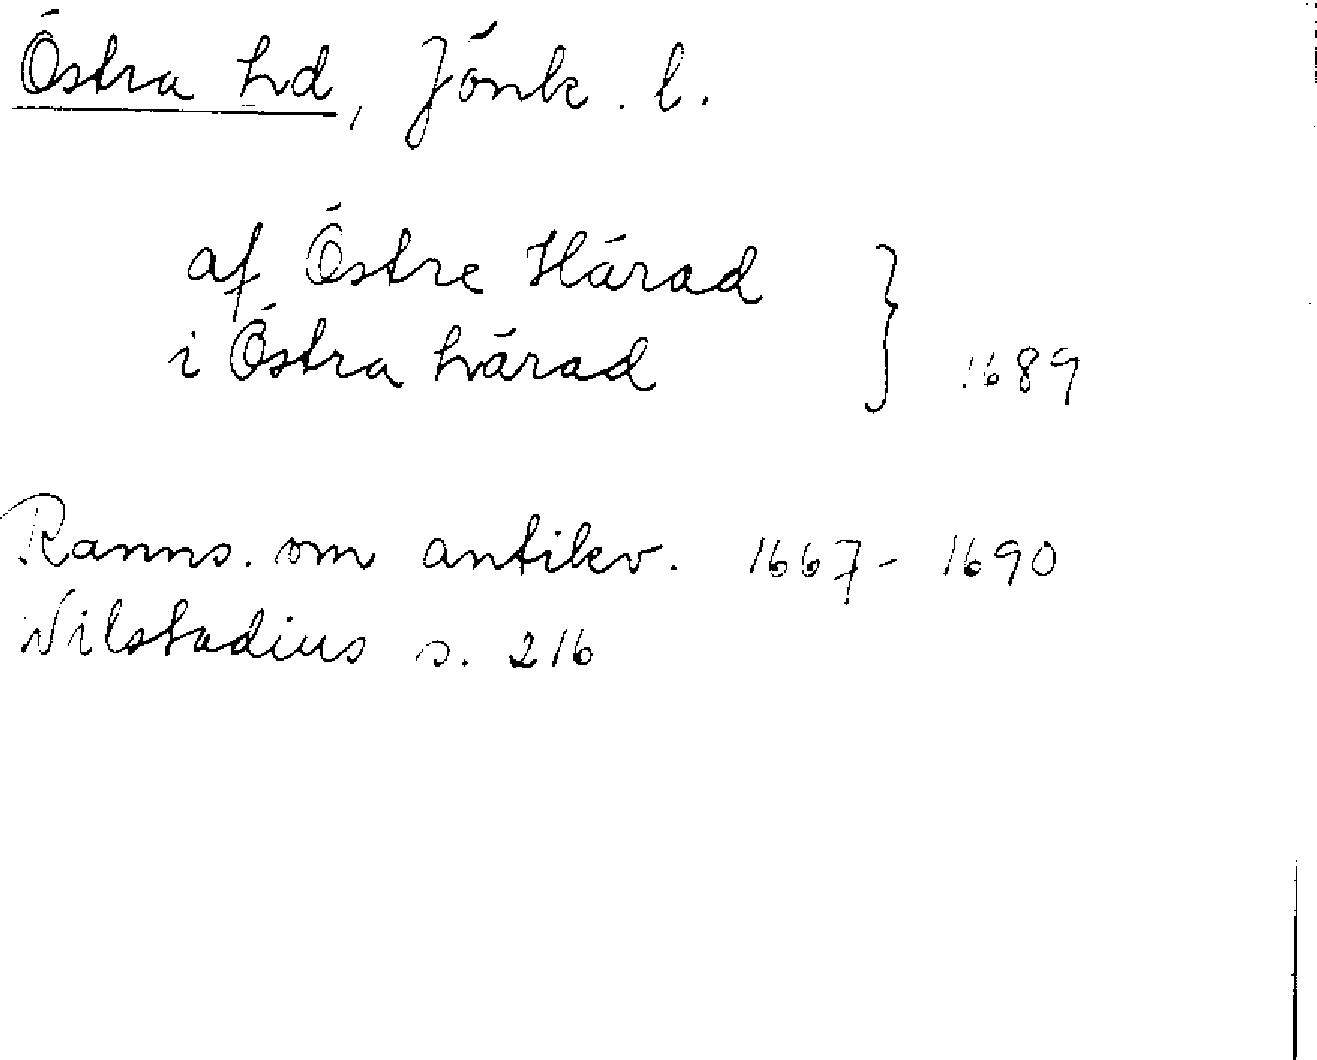 Östra hd, Jönk. l.
af Östre Härad
i Östra härad } 1689
Ranns. om antikv. 1667-1690
Nilstadius s. 216